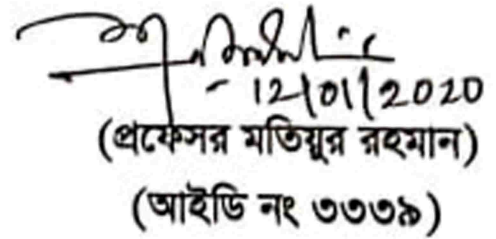 12/01/2020
(প্রফেসর মতিয়ুর রহমান)
(আইডি নং ৩৩৩৯)